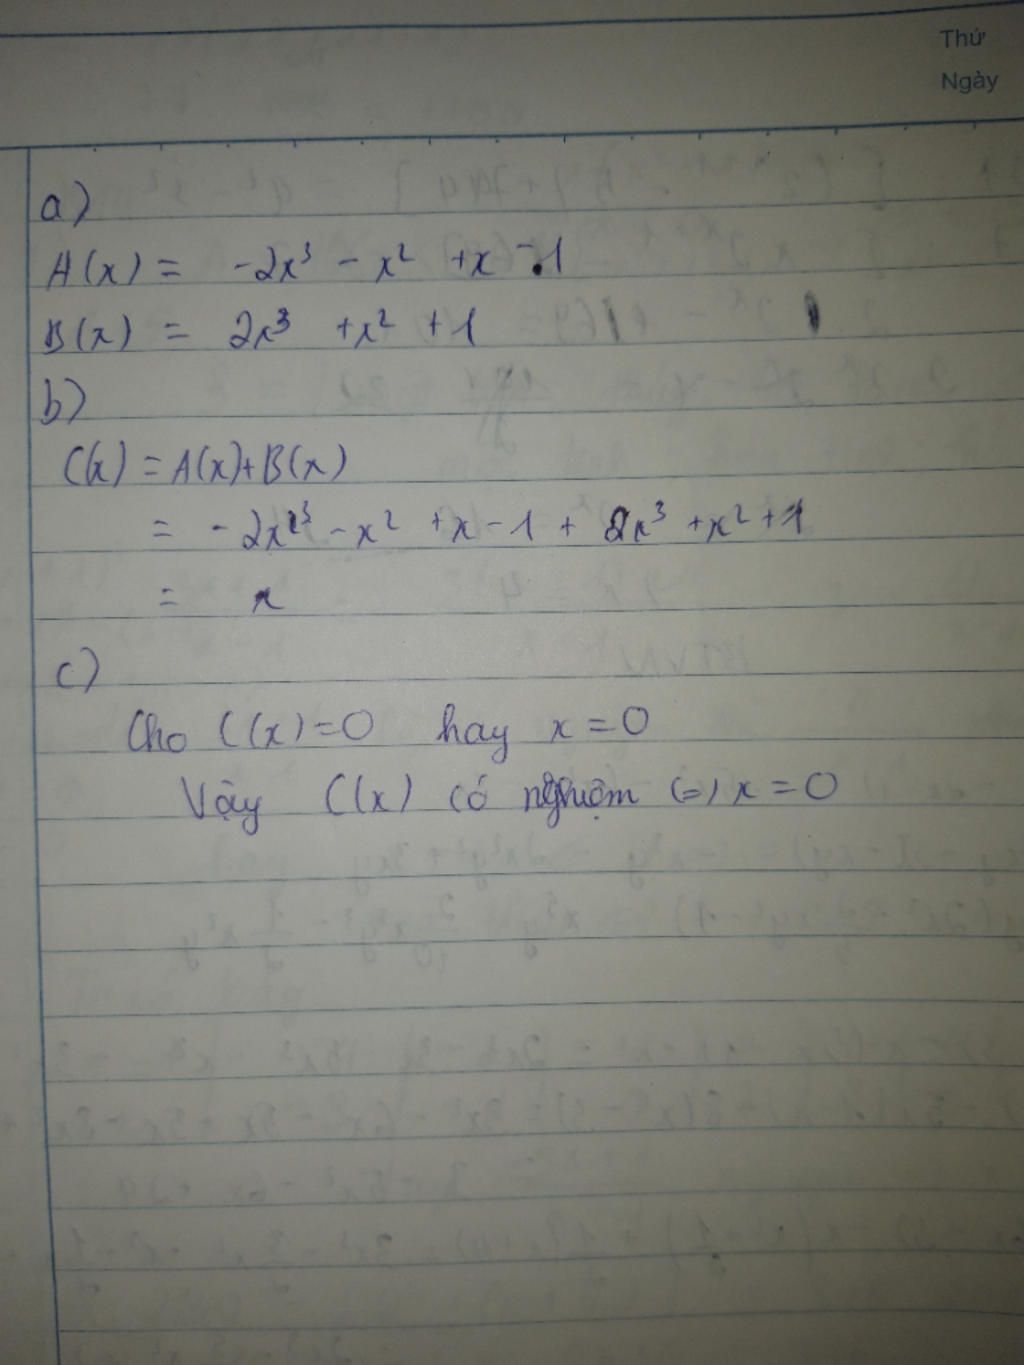 Thứ
Ngày
a)
A(x) = -2x³ - x² +x -1
B(x) = 2x³ +x² +1
b)
C(x) = A(x)+B(x)
= -2x³ -x² +x -1 + 2x³ +x² +1
= x
c)
Cho C(x)=0 hay x=0
Vậy C(x) có nghiệm (=) x=0